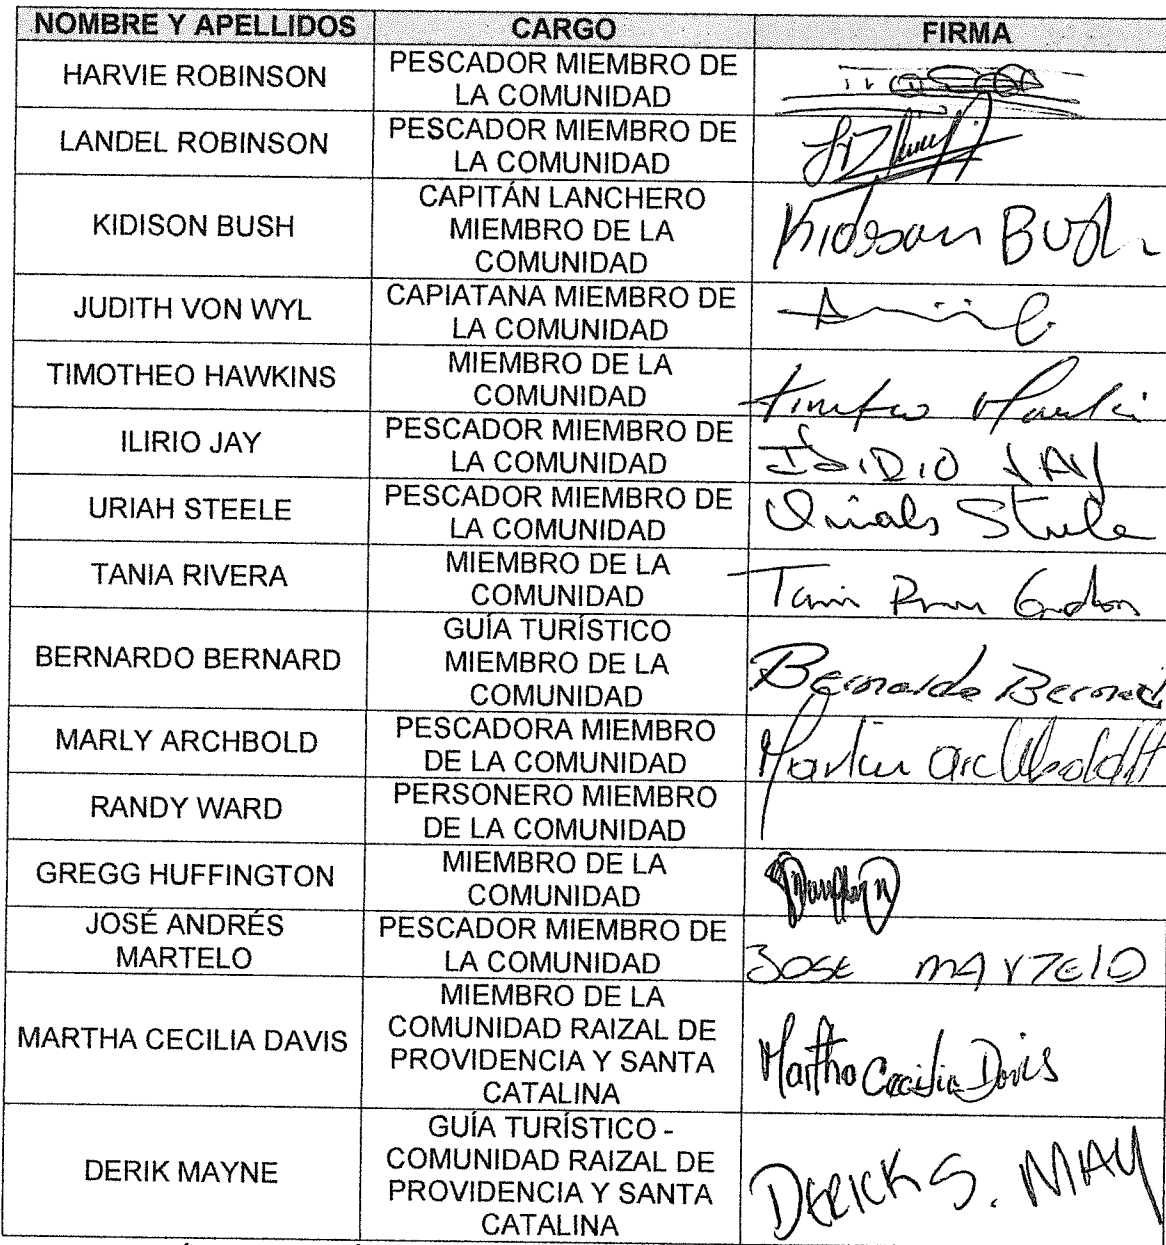 NOMBRE Y APELLIDOS CARGO FIRMA
HARVIE ROBINSON
PESCADOR MIEMBRO DE
LA COMUNIDAD
LANDEL ROBINSON
PESCADOR MIEMBRO DE
LA COMUNIDAD
KIDISON BUSH
CAPITÁN LANCHERO
MIEMBRO DE LA
COMUNIDAD
Kidson Bush
JUDITH VON WYL
CAPIATANA MIEMBRO DE
LA COMUNIDAD
TIMOTHEO HAWKINS
MIEMBRO DE LA
COMUNIDAD
ILIRIO JAY
PESCADOR MIEMBRO DE
LA COMUNIDAD
JAY
URIAH STEELE
PESCADOR MIEMBRO DE
LA COMUNIDAD
Steele
TANIA RIVERA
MIEMBRO DE LA
COMUNIDAD
Tania
BERNARDO BERNARD
GUÍA TURÍSTICO
MIEMBRO DE LA
COMUNIDAD
Bernardo Bernard
MARLY ARCHBOLD
PESCADORA MIEMBRO
DE LA COMUNIDAD
RANDY WARD
PERSONERO MIEMBRO
DE LA COMUNIDAD
GREGG HUFFINGTON
MIEMBRO DE LA
COMUNIDAD
JOSÉ ANDRÉS
MARTELO
PESCADOR MIEMBRO DE
LA COMUNIDAD
JOSE MARTELO
MARTHA CECILIA DAVIS
MIEMBRO DE LA
COMUNIDAD RAIZAL DE
PROVIDENCIA Y SANTA
CATALINA
Martha Cecilia Davis
DERIK MAYNE
GUÍA TURÍSTICO -
COMUNIDAD RAIZAL DE
PROVIDENCIA Y SANTA
CATALINA
DERICK S. MAY